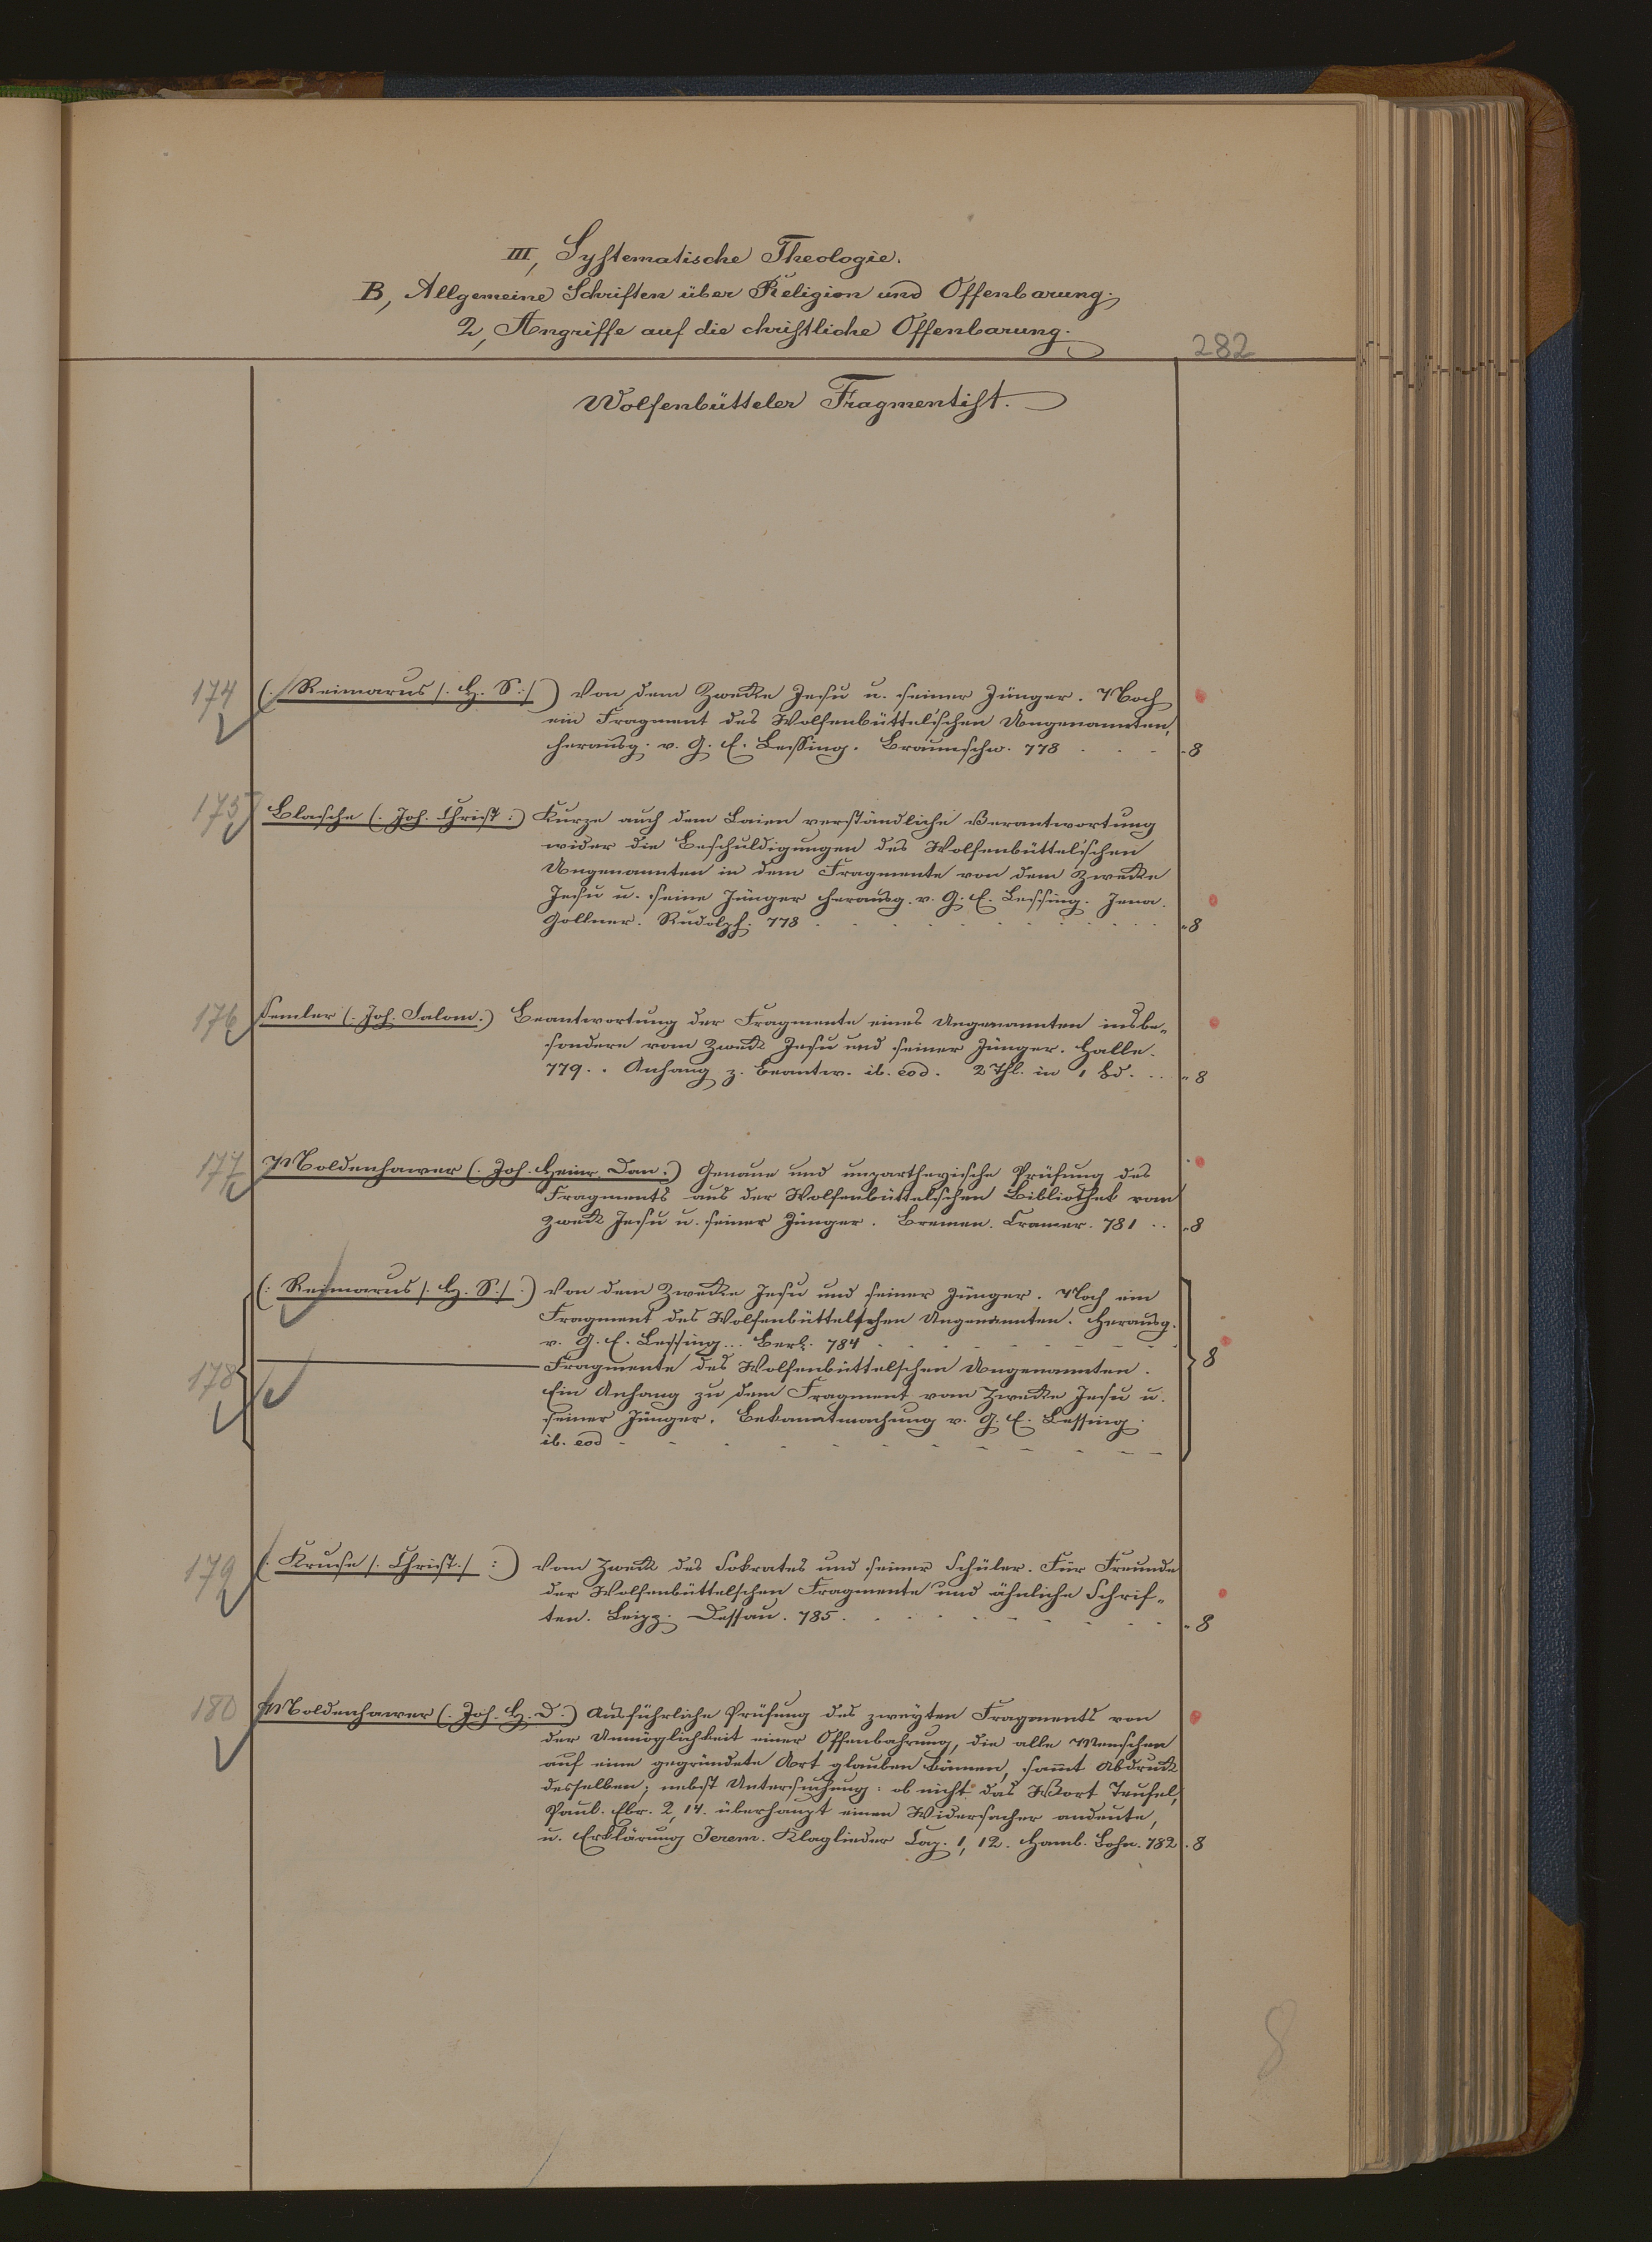 III, Systematische Theologie.
B, Allgemeine Schriften über Religion und Offenbarung.
2, Angriffe auf die christliche Offenbarung.
282
Wolfenbütteler Fragmentist.
174 (: Reimarus /: H. S :/ ) Von dem Zwecke Jesu u. seiner Jünger. Noch
ein Fragment des Wolfenbüttel'schen Ungenannten,
herausg. v. G. E. Lessing. Braunschw. 778 . . - 8
175 Blasche (: Joh. Christ :) Kurze auch dem Laien verständliche Verantwortung
wider die Beschuldigungen des Wolfenbüttel'schen
Ungenannten in dem Fragmente von dem Zwecke
Jesu u. seine Jünger herausg. v. G. E. Lessing. Jena.
Gollner. Rudolph. 778 . . . . . . . . . . . . 8
176 Semler (: Joh. Salom.) Beantwortung der Fragmente eines Ungenannten insbe-
sondere vom Zweck Jesu und seiner Jünger. Halle.
779. . Anhang z. Beantw. ib. eod. 2 Thl. in 1 Bd. . . 8
177 Moldenhawer (: Joh. Heinr. Dan :) Genaue und unpartheyische Prüfung des
Fragments aus der Wolfenbüttelschen Bibliothek vom
Zweck Jesu u. seiner Jünger. Bremen. Cramer. 781 . . 8
(: Reimarus /: H. S :/ :) Von dem Zwecke Jesu und seiner Jünger. Noch ein
Fragment des Wolfenbüttelschen Ungenannten. Herausg.
v. G. E. Lessing ... Berl. 784 - - - - - - 8
178 ——— Fragmente des Wolfenbüttelschen Ungenannten.
Ein Anhang zu dem Fragment vom Zwecke Jesu u.
seiner Jünger. Bekanntmachung v. G. E. Lessing.
ib. eod - - - - - - - - - -
179 (: Kruse /: Christ :/ :) Vom Zweck des Sokrates und seiner Schüler. Für Freunde
der Wolfenbüttelschen Fragmente und ähnliche Schrif-
ten. Leipz. Dessau. 785. . . . . - - - - . . 8
180 Moldenhawer (: Joh. H. D :) Ausführliche Prüfung des zweyten Fragments von
der Unmöglichkeit einer Offenbahrung, die alle Menschen
auf eine gegründete Art glauben können, sammt Abdruck
desselben; nebst Untersuchung: ob nicht das Wort Teufel,
Paul. Ebr. 2, 14. überhaupt einen Widersacher andeute,
u. Erklärung Jerem. Klaglieder Cap. 1, 12. Hamb. Bohn. 782 . 8
8